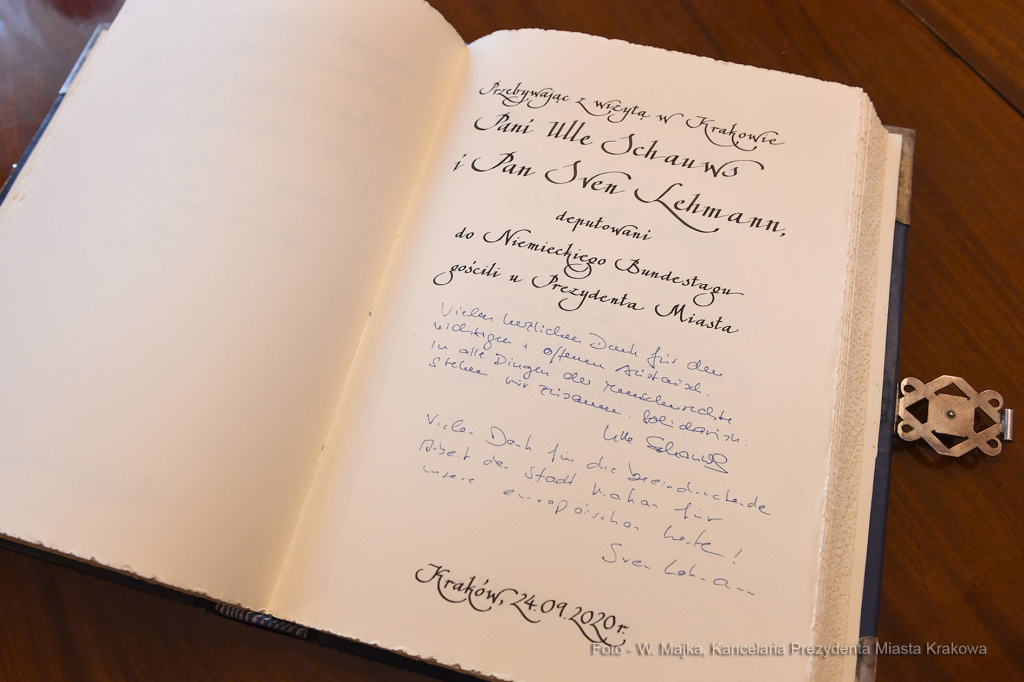 Przebywając z wizytą w Krakowie
Pani Ulle Schauws
i Pan Sven Lehmann,
deputowani
do Niemieckiego Bundestagu
gościli u Prezydenta Miasta
Vielen herzlichen Dank für den
wichtigen + offenen Austausch.
In alle Dingen der Menschenrechte
stehen wir zusammen. Solidarisch.
Ulle Schauws
Vielen Dank für die beeindruckende
Arbeit der Stadt Krakau für
unsere europäischen Werte!
Sven Lehmann
Kraków, 24.09.2020 r.
Foto - W. Majka, Kancelaria Prezydenta Miasta Krakowa